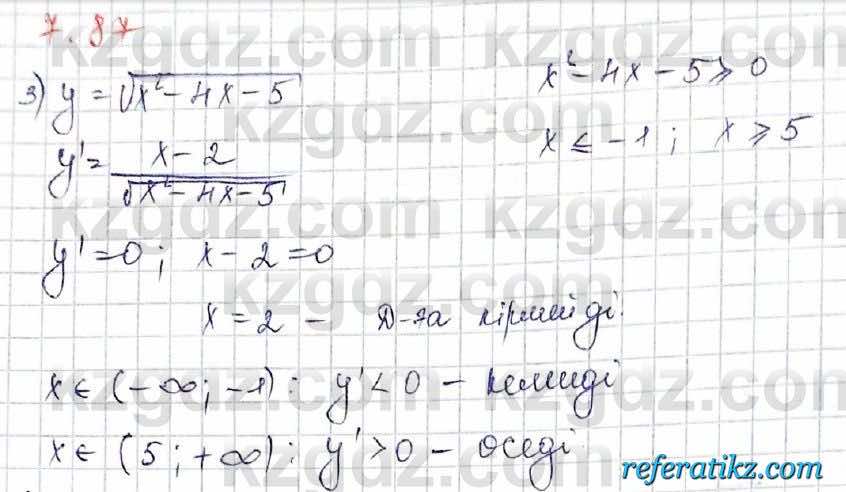 7.87
3) y = √x² - 4x - 5
x² - 4x - 5 ≥ 0
x ≤ -1; x ≥ 5
y' = x - 2 / √x² - 4x - 5
y' = 0; x - 2 = 0
x = 2 - D-ға кірмейді.
x ∈ (-∞; -1): y' < 0 - кемиді
x ∈ (5; +∞): y' > 0 - өседі.
kzgdz.com
referatikz.com